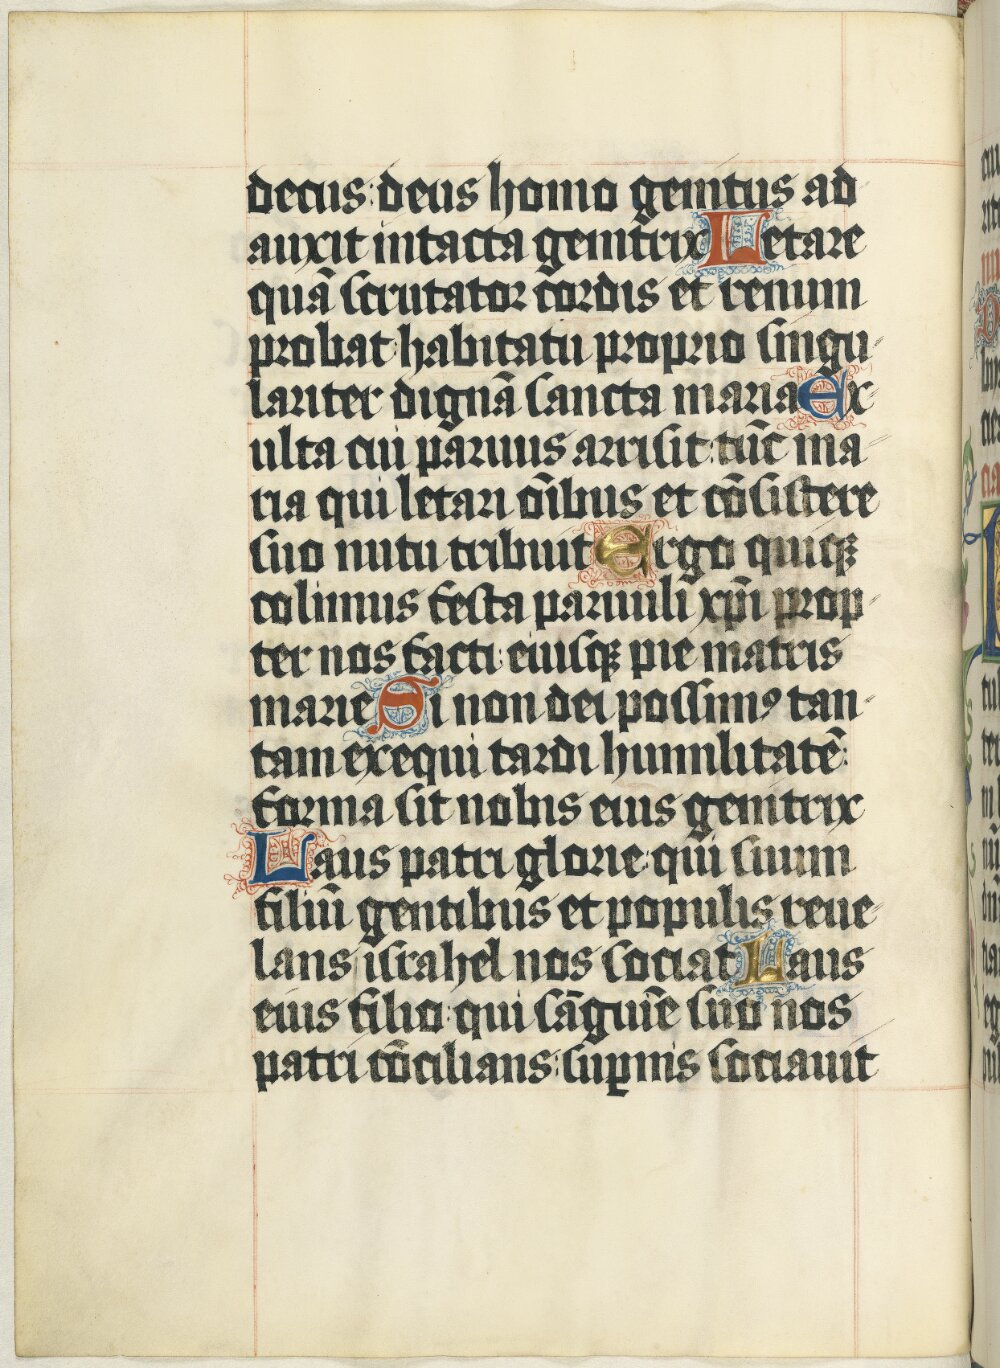 decus: deus homo genitus ad
auxit intacta genitrix Letare
quā scrutator cordis et renum
probat habitatu proprio singu
lariter dignā sancta maria Ex
ulta cui paruus arrisit: tūc ma
ria qui letari oībus et cōsistere
suo nutu tribuit Ergo quiqꝫ
colimus festa paruuli xp̄i prop
ter nos facti: eiusqꝫ pie matris
marie Si non dei possimꝰ tan
tam exequi tardi humilitatē:
forma sit nobis eius genitrix
Laus patri glorie: qui suum
filiū gentibus et populis reue
lans israhel nos sociat Laus
eius filio: qui sāguīe suo nos
patri cōcilians: suꝑnis sociauit